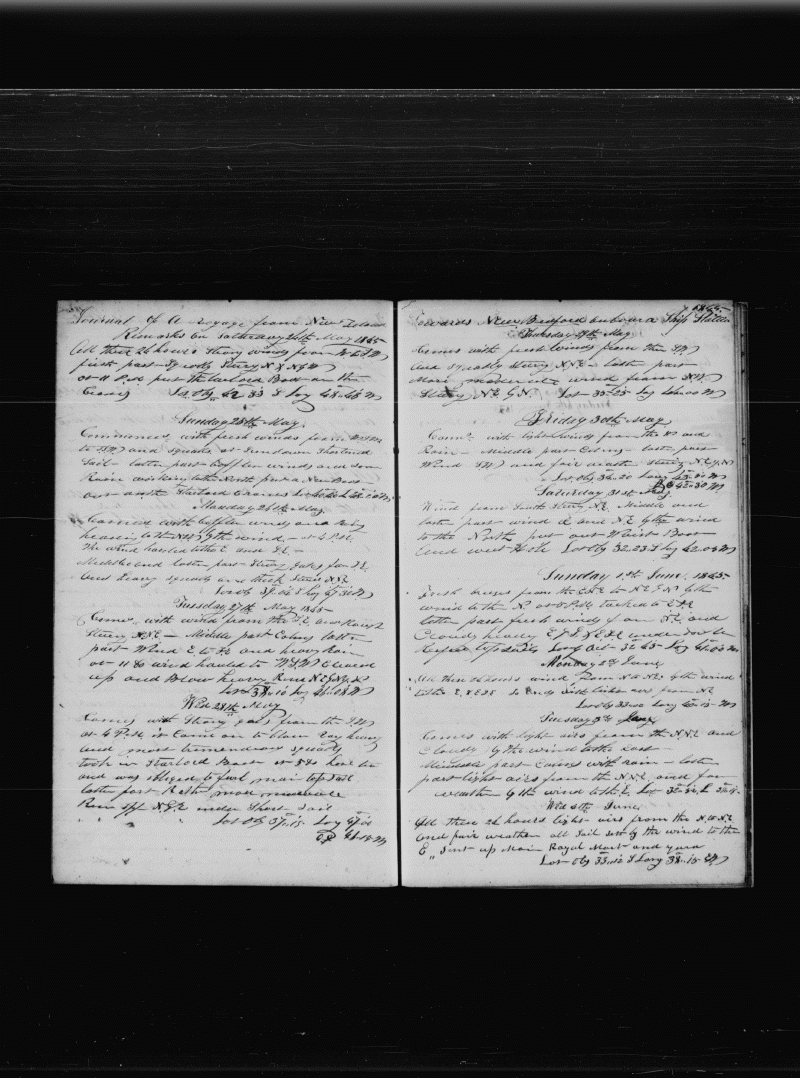 Journal of A voyage from New Zeland
Remarks on Satturday 24th May 1845
All these 24 hours Strong winds from
first part Squally Steary N
at 11 P.M. put the Larbord Boat on the
Cranes Lat Obs 42 33 S Long 48 48 W
Sunday 25th May
Commences with fresh winds from
to and squale at Sundown Shortend
Sail latter part Baffler winds and
Rain working to the North put a New Boat
on the Starbord Cranes
Monday 26th May
Comes with baffler winds and
heading to the N by the wind at 4 P.M.
the wind hauled to the E and S.E
Middle and latter part Strong Gales from S.E
and heavy squalls and thick Steard N.E
Lat Obs 39.04 S Long 47.31 W
Tuesday 27th May 1845
Comes with wind from the S.E. and Rainy
Steary N.N.E Middle part Calms latter
part Wind E to and heavy Rain
at 11 30 wind hauled to W.S.W Cleared
up and Blow heavy
Lat 38.10
Wed 28th May
Comes with Strong gales from the
at 4 P.M. it Came on to blow very heavy
and most tremendous squalls
took in Starbord Boat at 5.30 hove too
and was obliged to furl main top sail
latter part Rather more moderate
Run off N.E. under Short Sail
Lat Obs 37.15 Long 47.00
1845
towards New Bedford onboard Ship
Thursday 29th May
Comes with fresh winds from the
and squally Steary N.N.E latter part
More moderate wind from
Steary N.E by N. Lat 35 23 Long
Friday 30th May
Comes with light winds from the and
Rain Middle part Calms latter part
Wind and fair weather Steary N.E by N
Lat Obs 34 20 Long
Saturday 31st May
Wind from South Steary N.E Middle and
latter part wind E and N.E by the wind
to the North put out Waist Boat
and west Hole Lat Obs 32.23 S Long 42.03 W
Sunday 1st June 1845
Fresh breezes from the E.N.E to N.E by N by the
wind to the N at 8 P.M. tacked to E
latter part fresh winds from N.E. and
Cloudy heading E under double
Reefed topsails Lat Obs 32 45
Monday 2d June
All these 24 hours wind from N to N.E by the wind
to the E. & E.S.E. Ends with lighter airs from N.E
Lat Obs 33.00 Long 40.13 W
Tuesday 3d June
Comes with light airs from the N.N.E and
Cloudy by the wind to the East
Middle part Calms with rain latter
part light airs from the N.N.E. and fair
weather by the wind to the E.
Wed 4th June
All these 24 hours light airs from the N to N.E
and fair weather all Sail Set by the wind to the
E Sent up Main Royal Mast and yard
Lat Obs 33.12 S Long 38.15 W